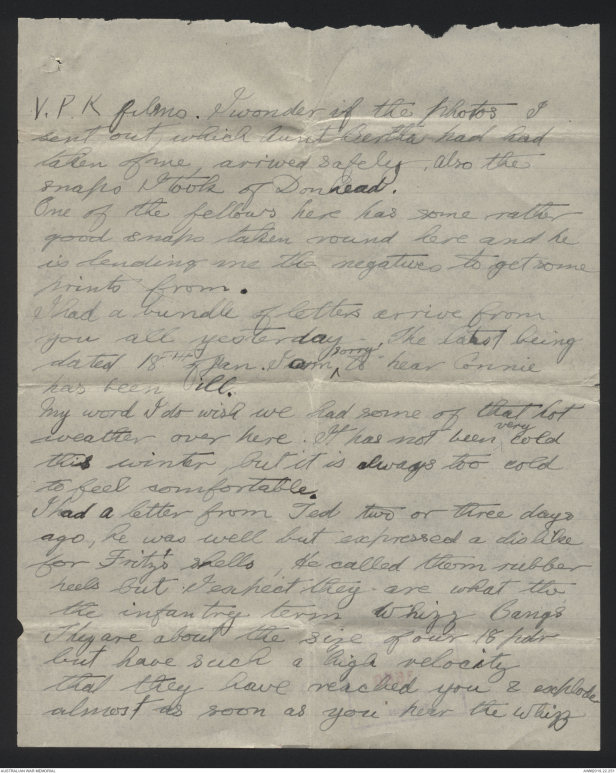 V.P.K films. I wonder if the photos I
sent out which Aunt Bertha had had
taken of me, arrived safely, also the
snaps I took of Donhead.
One of the fellows here has some rather
good snaps taken round here and he
is lending me the negatives to get some
prints from.
I had a bundle of letters arrive from
you all yesterday - The latest being
dated 18th of Jan. I am sorry to hear Connie
has been ill.
My word I do wish we had some of that hot
weather over here. It has not been very cold
this winter, but it is always too cold
to feel comfortable.
I had a letter from Ted two or three days
ago, he was well but expressed a dislike
for Fritz's shells, He called them rubber
heels but I expect they are what the
the infantry term Whizz Bangs
They are about the size of our 18 pdr
but have such a high velocity
that they have reached you & explode
almost as soon as you hear the whizz
AUSTRALIAN WAR MEMORIAL